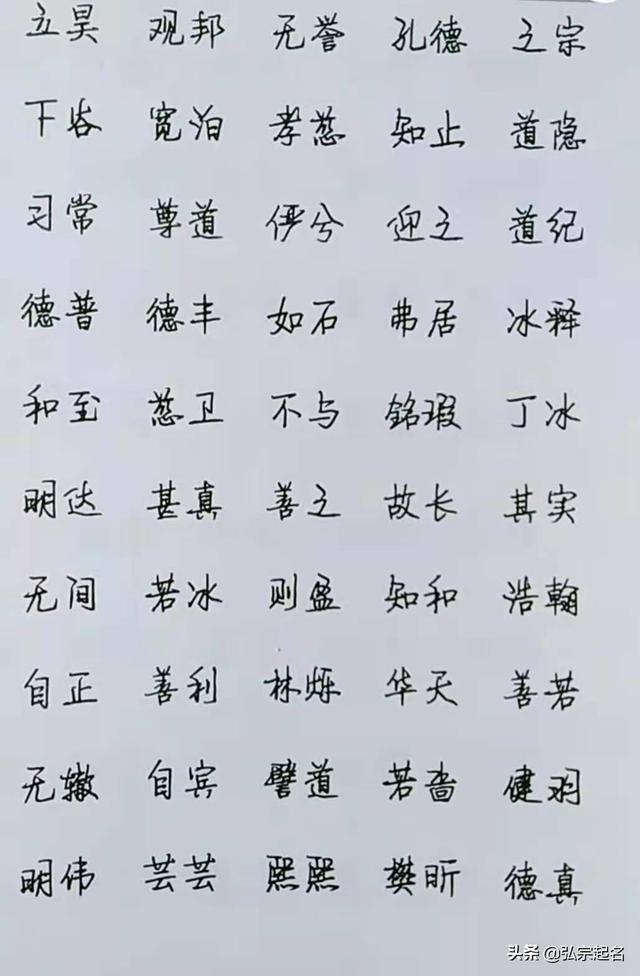 立昊 观邦 无誉 孔德 之宗
下谷 宽泊 孝慈 知止 道隐
习常 尊道 俨兮 迎之 道纪
德普 德丰 如石 弗居 冰释
和至 慈卫 不与 铭瑕 丁冰
明达 甚真 善之 故长 其实
无间 若冰 则盈 知和 浩翰
自正 善利 林烁 华天 善若
无辙 自宾 譬道 若啬 健羽
明伟 芸芸 熙熙 樊昕 德真
头条 @弘宗起名